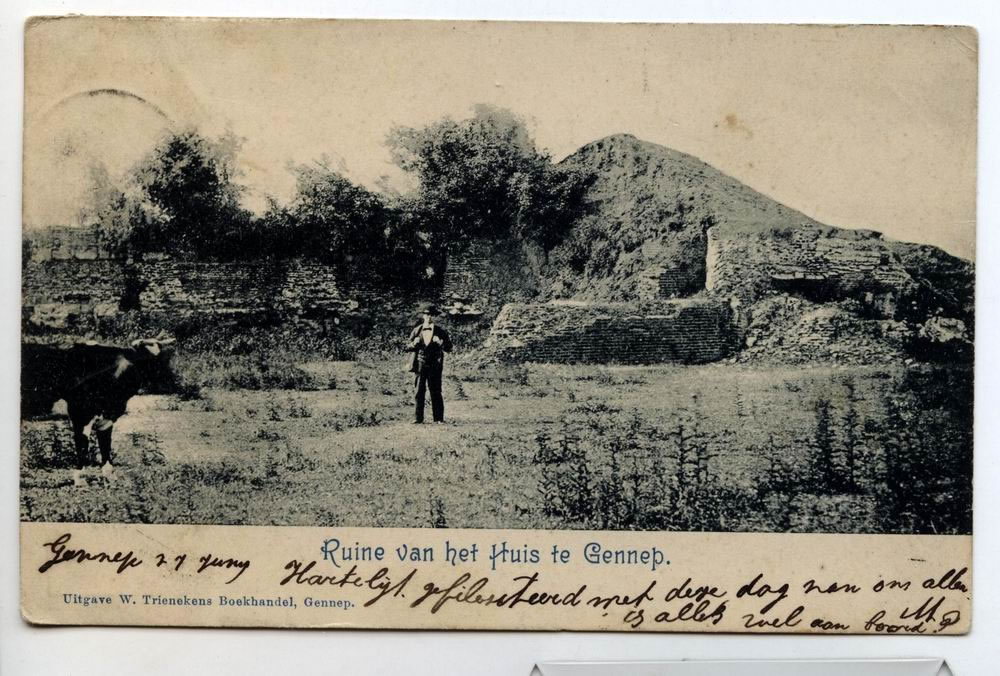 Ruine van het Huis te Gennep.
Gennep 27 Juny
Hartelijk gefilesiteerd met deze dag van ons allen.
is alles wel aan boord? M
Uitgave W. Trienekens Boekhandel, Gennep.